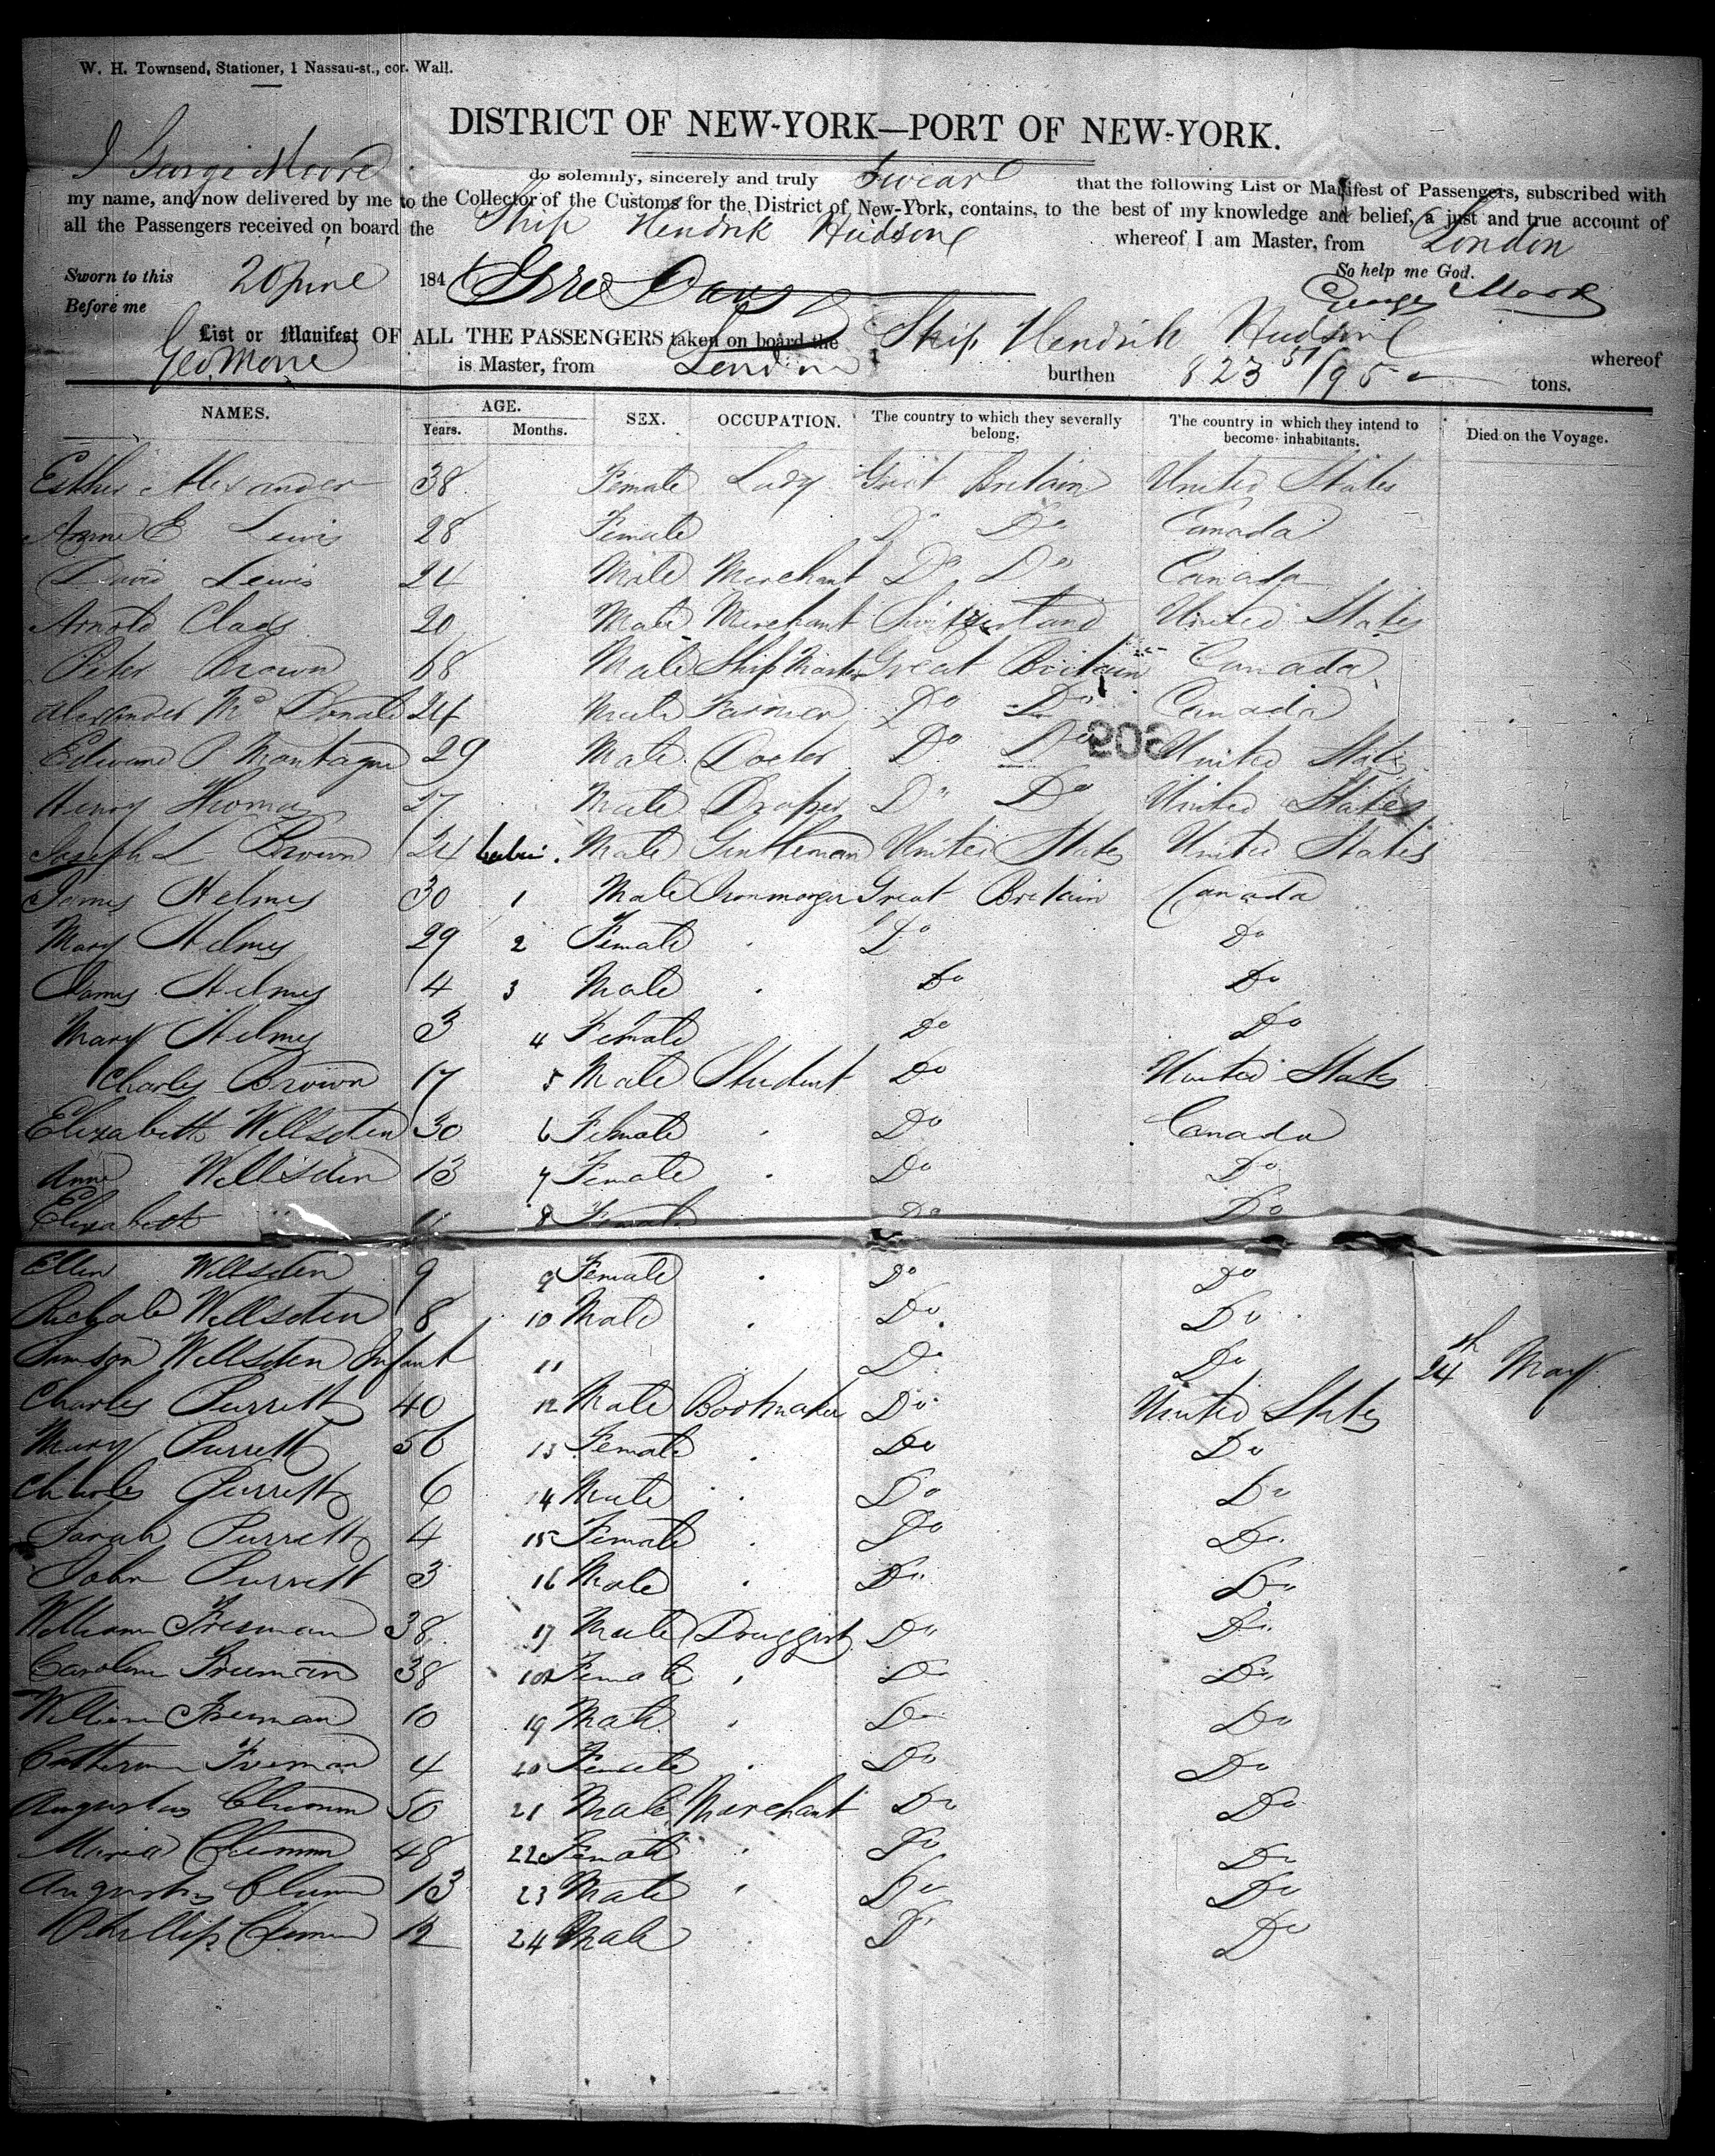 W. H. Townsend, Stationer, 1 Nassau-st., cor. Wall.
DISTRICT OF NEW-YORK—PORT OF NEW-YORK.
I George Moore do solemnly, sincerely and truly Swear that the following List or Manifest of Passengers, subscribed with
my name, and now delivered by me to the Collector of the Customs for the District of New-York, contains, to the best of my knowledge and belief, a just and true account of
all the Passengers received on board the Ship Hendrik Hudson whereof I am Master, from London
Sworn to this 20 June 184 So help me God.
Before me George Moore
List or Manifest OF ALL THE PASSENGERS taken on board the Ship Hendrik Hudson whereof
Geo Moore is Master, from London burthen 823 51/95 tons.
NAMES. AGE. SEX. OCCUPATION. The country to which they severally belong. The country in which they intend to become inhabitants. Died on the Voyage.
Years. Months.
Esther Alexander 38 Female Lady Great Britain United States
Anne E Lewis 28 Female Do Do Canada
David Lewis 24 Male Merchant Do Do Canada
Arnold 20 Male Merchant Switzerland United States
Peter Brown 68 Male Ship Master Great Britain Canada
Alexander Mc Donald 24 Male Farmer Do Do Canada
Edward P Montague 29 Male Doctor Do Do United States
Henry Thomas 27 Male Draper Do Do United States
Joseph L Brown 24 Male Gentleman United States United States
James Helmes 30 1 Male Ironmonger Great Britain Canada
Mary Helmes 29 2 Female Do Do
James Helmes 4 3 Male Do Do
Mary Helmes 3 4 Female Do Do
Charles Brown 17 5 Male Student Do United States
Elizabeth Wellsden 30 6 Female Do Canada
Anne Wellsden 13 7 Female Do Do
Elizabeth 11 8 Female Do Do
Ellen Wellsden 9 9 Female Do Do
Wellsden 8 10 Male Do Do
Wellsden Infant 11 Do Do 24th May
Charles Purrett 40 12 Male Bootmaker Do United States
Mary Purrett 36 13 Female Do Do
Charles Purrett 6 14 Male Do Do
Sarah Purrett 4 15 Female Do Do
John Purrett 3 16 Male Do Do
William Freeman 38 17 Male Druggist Do Do
Caroline Freeman 38 18 Female Do Do
William Freeman 10 19 Male Do Do
Catherine Freeman 4 20 Female Do Do
Augustus 50 21 Male Merchant Do Do
Maria 48 22 Female Do Do
Augustus 13 23 Male Do Do
Phillip 12 24 Male Do Do